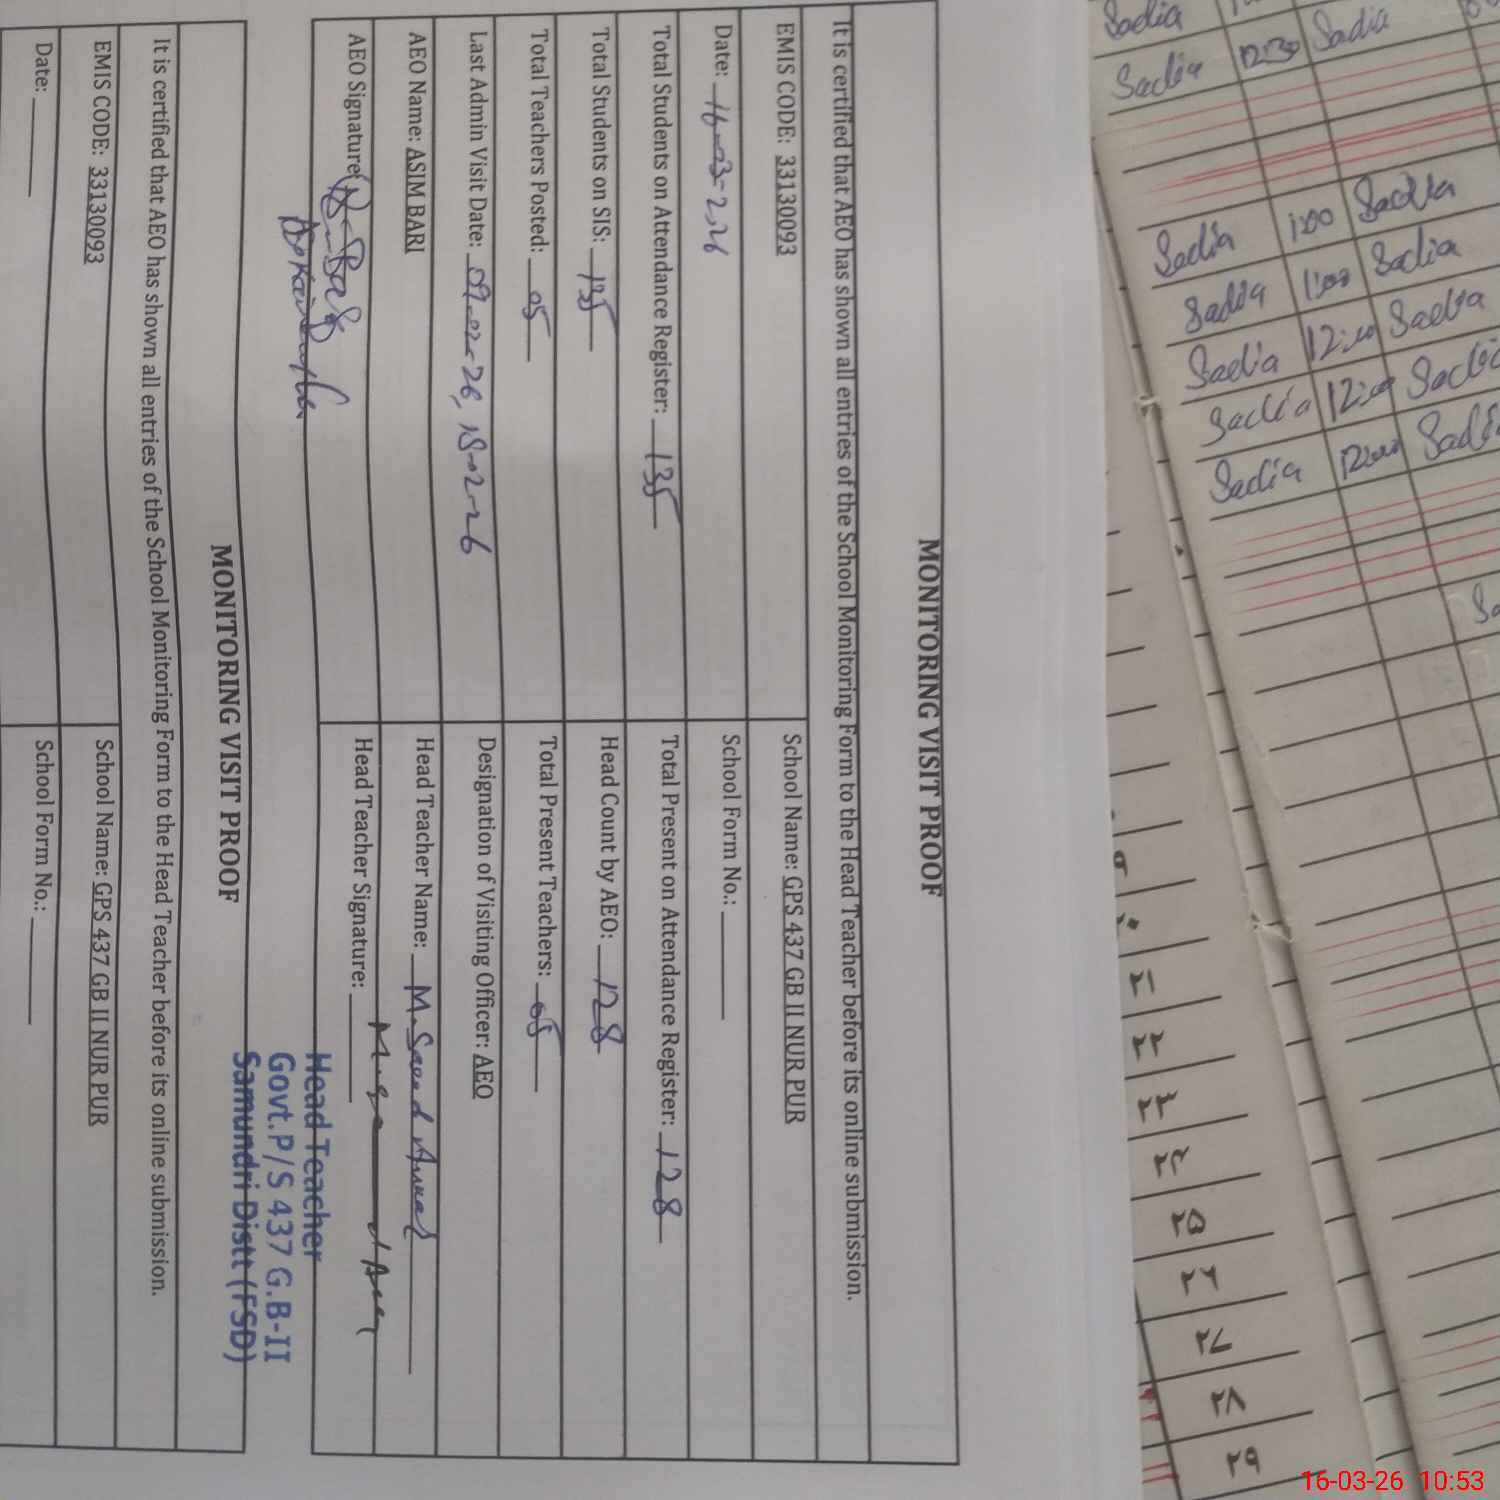 MONITORING VISIT PROOF
It is certified that AEO has shown all entries of the School Monitoring Form to the Head Teacher before its online submission.
EMIS CODE: 33130093 School Name: GPS 437 GB II NUR PUR
Date: 16-03-2026 School Form No.:
Total Students on Attendance Register: 135 Total Present on Attendance Register: 128
Total Students on SIS: 135 Head Count by AEO: 128
Total Teachers Posted: 05 Total Present Teachers: 05
Last Admin Visit Date: 09-02-26, 18-02-26 Designation of Visiting Officer: AEO
AEO Name: ASIM BARI Head Teacher Name: M. Saeed
AEO Signature: Head Teacher Signature:
Head Teacher
Govt.P/S 437 G.B-II
Samundri Distt (FSD)
MONITORING VISIT PROOF
It is certified that AEO has shown all entries of the School Monitoring Form to the Head Teacher before its online submission.
EMIS CODE: 33130093 School Name: GPS 437 GB II NUR PUR
Date: School Form No.:
Sadia
Sadia 12:30 Sadia
Sadia 1:00 Sadia
Sadia 1:00 Sadia
Sadia 12:00 Sadia
Sadia 12:00 Sadia
Sadia 12:00 Sadia
۲۲
۲۳
۲۴
۲۵
۲۶
۲۷
۲۸
۲۹
16-03-26 10:53